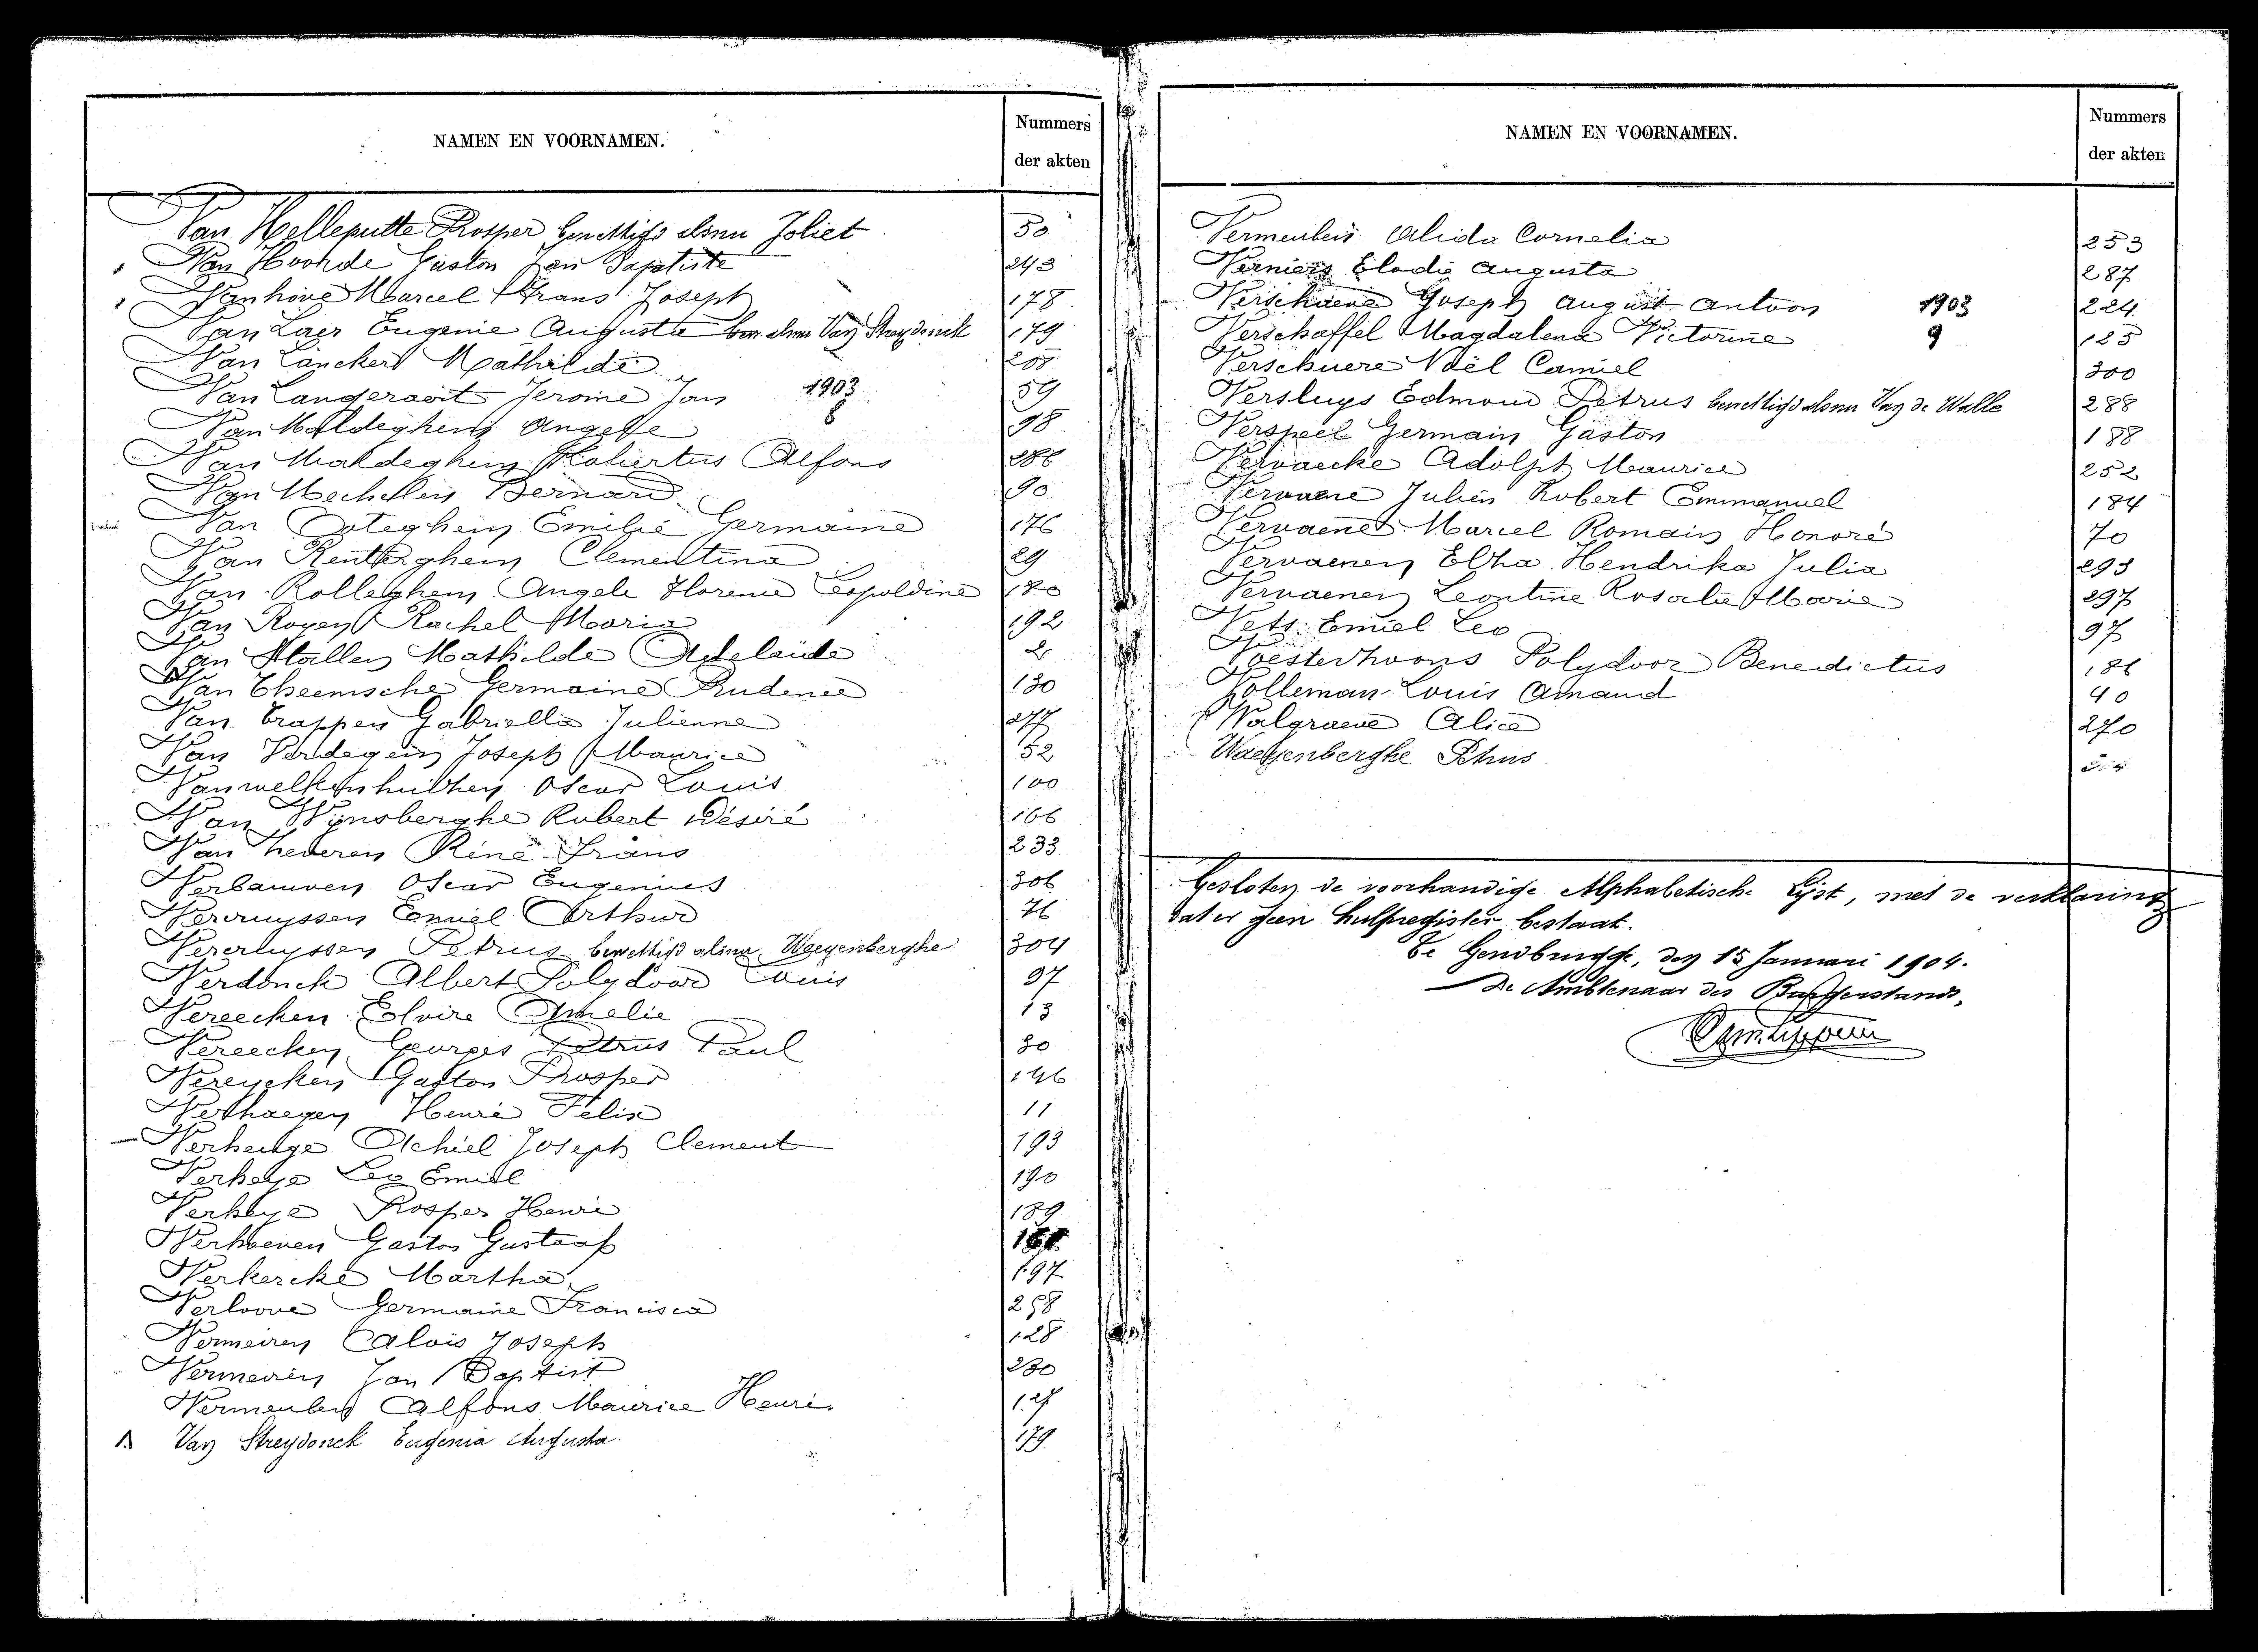 NAMEN EN VOORNAMEN.
Nummers
der akten
Van Helleputte Prosper bewettigd alsnu Joliet 50
Van Hoorde Gaston Jan Baptiste 243
Van hove Marcel Frans Joseph 178
Van Laer Eugenie Augusta bew. alsnu Van Streydonck 179
Van Lancker Mathilde 205
Van Langeraert Jerome Jan 1903 59
Van Maldeghem Angele 8 98
Van Maldeghem Robertus Alfons 286
Van Mechelen Bernard 90
Van Ooteghem Emilie Germaine 176
Van Renterghem Clementina 29
Van Rolleghem Angele Florence Leopoldine 180
Van Royen Rachel Maria 192
Van Stallen Mathilde Adelaide 2
Van Theemsche Germaine Prudence 130
Van Trappen Gabriella Julienne 277
Van Verdegem Joseph Maurice 52
Vanwelkenhuithen Oscar Louis 100
Van Wynsberghe Robert Désiré 166
Van heveren Réné Frans 233
Verbauwen Oscar Eugenius 306
Vercruyssen Emiel Arthur 76
Vercruyssen Petrus bewettigd alsnu Waeyenberghe 304
Verdonck Albert Polydoor Louis 97
Vereecken Elvire Amelie 13
Vereecken Georges Petrus Paul 30
Vereycken Gaston Prosper 146
Verhaegen Henri Felix 11
Verheuge Achiel Joseph Clement 193
Verheye Leo Emiel 190
Verheye Prosper Henri 189
Verhoeven Gaston Gustaaf
Verkercke Martha 197
Verloove Germaine Francisca 258
Vermeiren Alois Joseph 128
Vermeiren Jan Baptist 230
Vermeulen Alfons Maurice Henri. 127
1. Van Streydonck Eugenia Augusta 179
NAMEN EN VOORNAMEN.
Nummers
der akten
Vermeulen Alida Cornelia 253
Verniers Elodie Augusta 287
Verschaeve Joseph August Antoon 1903 224
Verschaffel Magdalena Victorine 9 125
Verschuere Noël Camiel 300
Versluys Edmond Petrus bewettigd alsnu Van de Walle 288
Verspeel Germain Gaston 188
Vervaecke Adolph Maurice 252
Vervaene Julien Robert Emmanuel 184
Vervaene Marcel Romain Honoré 70
Vervaenen Elha Hendrika Julia 293
Vervaenen Leontine Rosalie Marie 297
Vets Emiel Leo 97
Voesterhoons Polydoor Benedictus 186
Volleman Louis Amand 40
Walgraeve Alice 270
Waeyenberghe Petrus
Gesloten de voorhandige Alphabetische Lijst, met de verklaring
dat er geen hulpregister bestaat.
Te Gendbrugge, den 15 Januari 1904.
De Ambtenaar des Burgerstands,